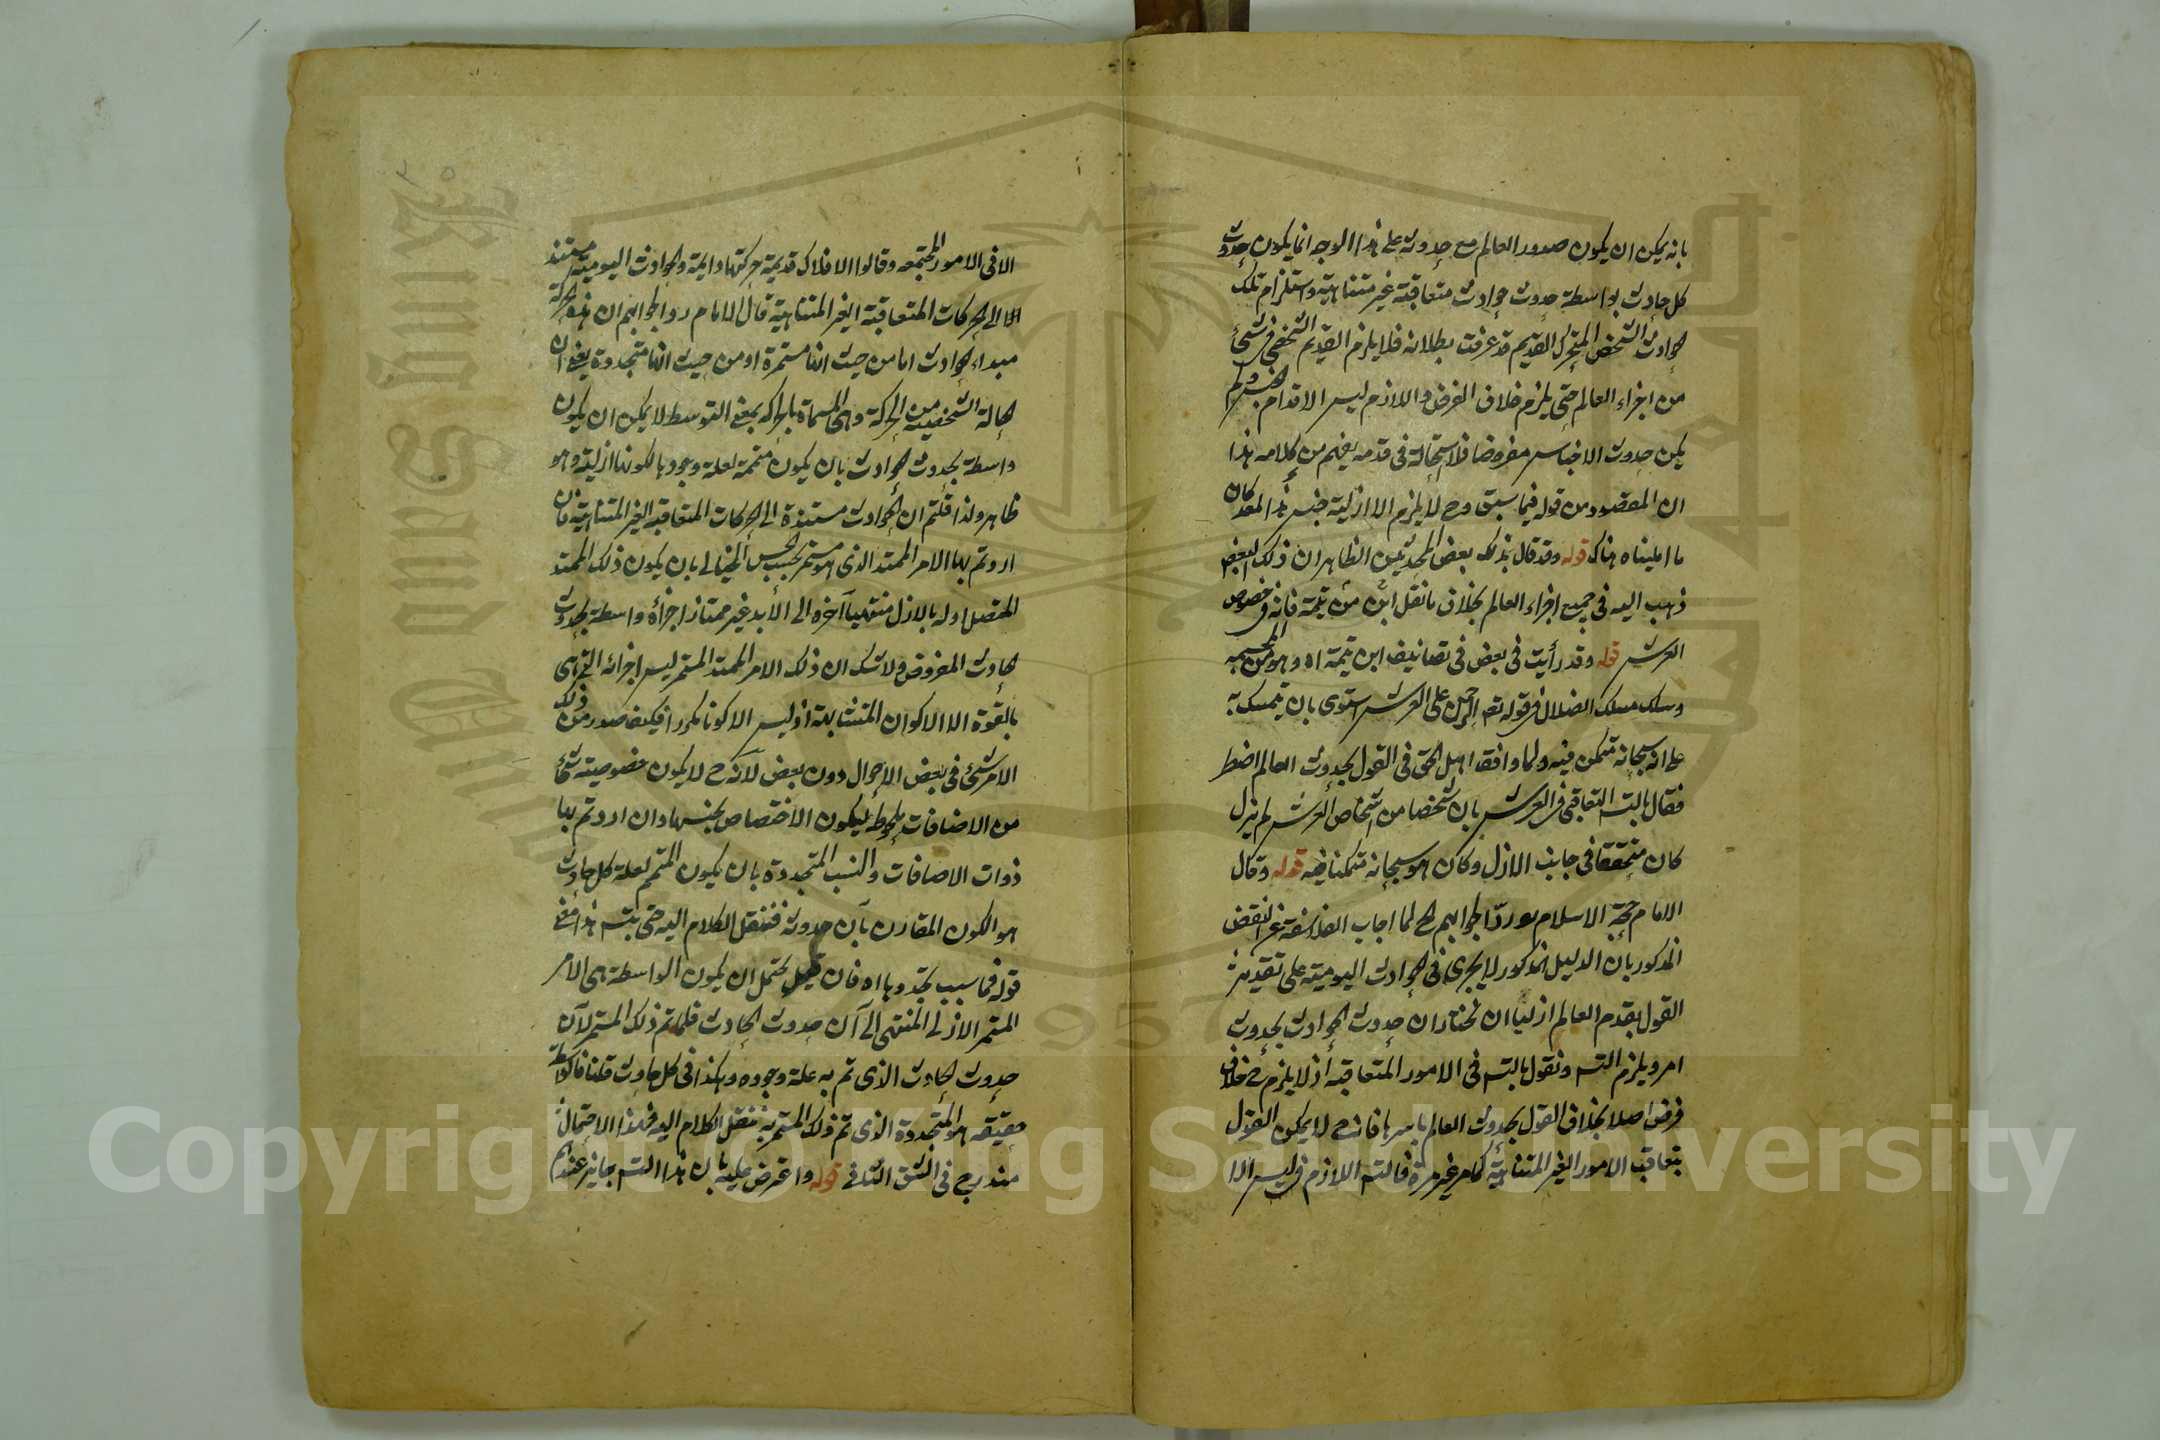 بانه يمكن ان يكون صدور العالم مع حدوثه على هذا الوجه انما يكون حدوث
كل حادث بواسطة حدوث حوادث متعاقبة غير متناهية واستلزام تلك
الحوادث الشخص المتحرك القديم قد عرفت بطلانه فلا يلزم القديم الشخصي في شئ
من اجزاء العالم حتى يلزم خلاف الفرض واللازم ليس الا قدم الجنس ولم
يكن حدوث الاجناس مفروضا فلا استحالة في قدمه يفهم من كلامه هذا
ان المقصود من قوله فيما سبق وح لا يلزم الا ازلية جنس هذا المعد كان
ما امليناه هناك قوله وقد قال بذلك بعض المحدثين الظاهر ان ذلك البعض
ذهب اليه في جميع اجزاء العالم بخلاف ما نقل من ابن تيمة فانه في خصوص
العرش قوله وقد رأيت في بعض في تصانيف ابن تيمة اه وهو من المجسمه
وسلك مسلك الضلال في قوله تعم الرحمن على العرش استوى بان يتمسك به
على انه سبحانه متمكن فيه ولما وافق اهل الحق في القول بحدوث العالم اضطر
فقال بالتسه التعاقبي في العرش بان شخصا من اشخاص العرش لم يزل
كان متحققا في جانب الازل وكان هو سبحانه متمكنا فيه قوله وقال
الامام حجة الاسلام رد الجوابهم الخ لما اجاب الفلاسفة عن النقض
المذكور بان الدليل المذكور لا يجري في الحوادث اليومية على تقدير
القول بقدم العالم اذ لنا ان نختار ان حدوث الحوادث بحدوث
امر ويلزم التسه ونقول بالتسه في الامور المتعاقبة اذ لا يلزم ح خلاف
فرض اصلا بخلاف القول بحدوث العالم باسرها فانه ح لا يمكن القول
بتعاقب الامور الغير المتناهية كما مر غير مرة فالتسه اللازم ليس الا
الا في الامور المجتمعه وقالوا الافلاك قديمة حركتها دايمة والحوادث اليومية مستند
الا الى الحركات المتعاقبة الغير المتناهية قال الامام رد الجوابهم ان هذه الحركة
مبداء الحوادث اما من حيث انها مستمرة او من حيث انها متجددة يعني ان
الحالة الشخصية من الحركة وهي المسماة بالحركة بمعنى التوسط لا يمكن ان يكون
واسطة لحدوث الحوادث بان يكون متممة لعلة وجودها لكونها ازلية وهو
ظاهر ولذا قلتم ان الحوادث مستندة الى الحركات المتعاقبة الغير المتناهية فان
اردتم بها الامر الممتد الذي هو مستمر بحسب الحس الخيالي بان يكون ذلك الممتد
المتصل اوله بالازل منتهيا آخره الى الأبد غير ممتاز اجزاؤه واسطة لحدوث
الحادث المفروض ولا شك ان ذلك الامر الممتد المستمر ليس اجزائه التي هي
بالقوة الا الاكوان المتشابهة اذ ليس الا كونا مكررا فكيف صدور من ذلك
الامر شئ في بعض الاحوال دون بعض لانه ح لا يكون خصوصيته شئا
من الاضافات ملحوظ ليكون الاختصاص بجنسها وان اردتم بها
ذوات الاضافات والنسب المتجددة بان يكون المتمم لعلة كل حادث
هو الكون المقارن بآن حدوثه فننقل الكلام اليه حتى يتسه هذا معنى
قوله فما سبب تجددها اه فان قيل يحتمل ان يكون الواسطة هي الامر
المستمر الازلي المنتهى الى آن حدوث الحادث فلما تم ذلك المستمر لآن
حدوث الحادث الذي تم به علة وجوده وهكذا في كل حادث قلنا فالواسطة
حقيقة هو المتجددة الذي تم ذلك المستمر به فننقل الكلام اليه فهذا الاحتمال
مندرج في الشق الثاني قوله واعترض عليه بان هذا التسه جايز عندهم
King Saud University
1957
Copyright © King Saud University